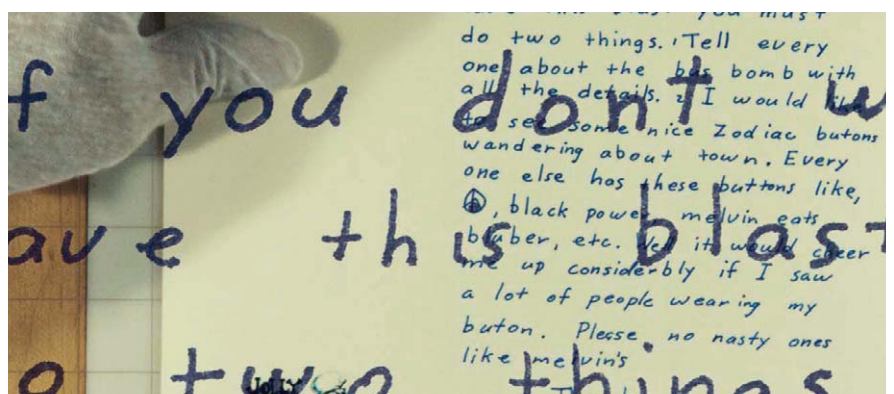 f you dont w
ave this blast
o two things.
have this blast you must
do two things. 1 Tell every
one about the bus bomb with
all the details. 2 I would like
to see some nice Zodiac butons
wandering about town. Every
one else has these buttons like,
, black power, melvin eats
bluber, etc. Well it would cheer
me up considerbly if I saw
a lot of people wearing my
buton. Please no nasty ones
like melvin's
JOLLY